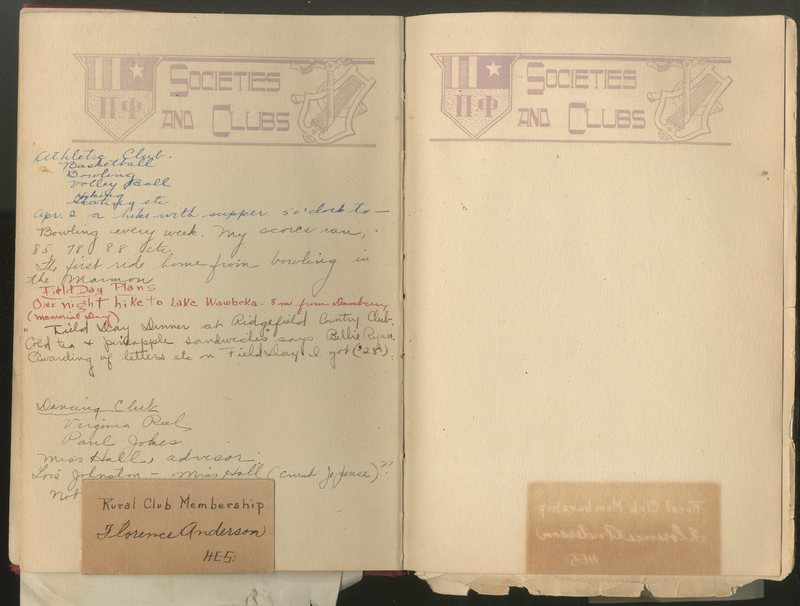 ΠΦ
SOCIETIES
AND CLUBS
Athletic Club.
Basketball
Bowling
Volley Ball
Hiking
Skating etc
Apr. 2 a hike with supper. 5 o'clock to —
Bowling every week. My scores ran,
85, 78 88 etc
The first ride home from bowling in
the Marmon
Field Day Plans
Over night hike to Lake Wawbeka - 8 mi. from Danbury
(memorial Day)
" Field Day Dinner at Ridgefield Country Club.
Cold tea & pineapple sandwiches" says Bettie Ryan.
Awarding of letters etc on Field Day. I got ('28)
Dancing Club
Virginia Reel
Paul Jones
Miss Hall, advisor.
Lois Johnston - Miss Hall ( ??
Not
Rural Club Membership
Florence Anderson
HES
ΠΦ
SOCIETIES
AND CLUBS
Rural Club Membership
Florence Anderson
HES